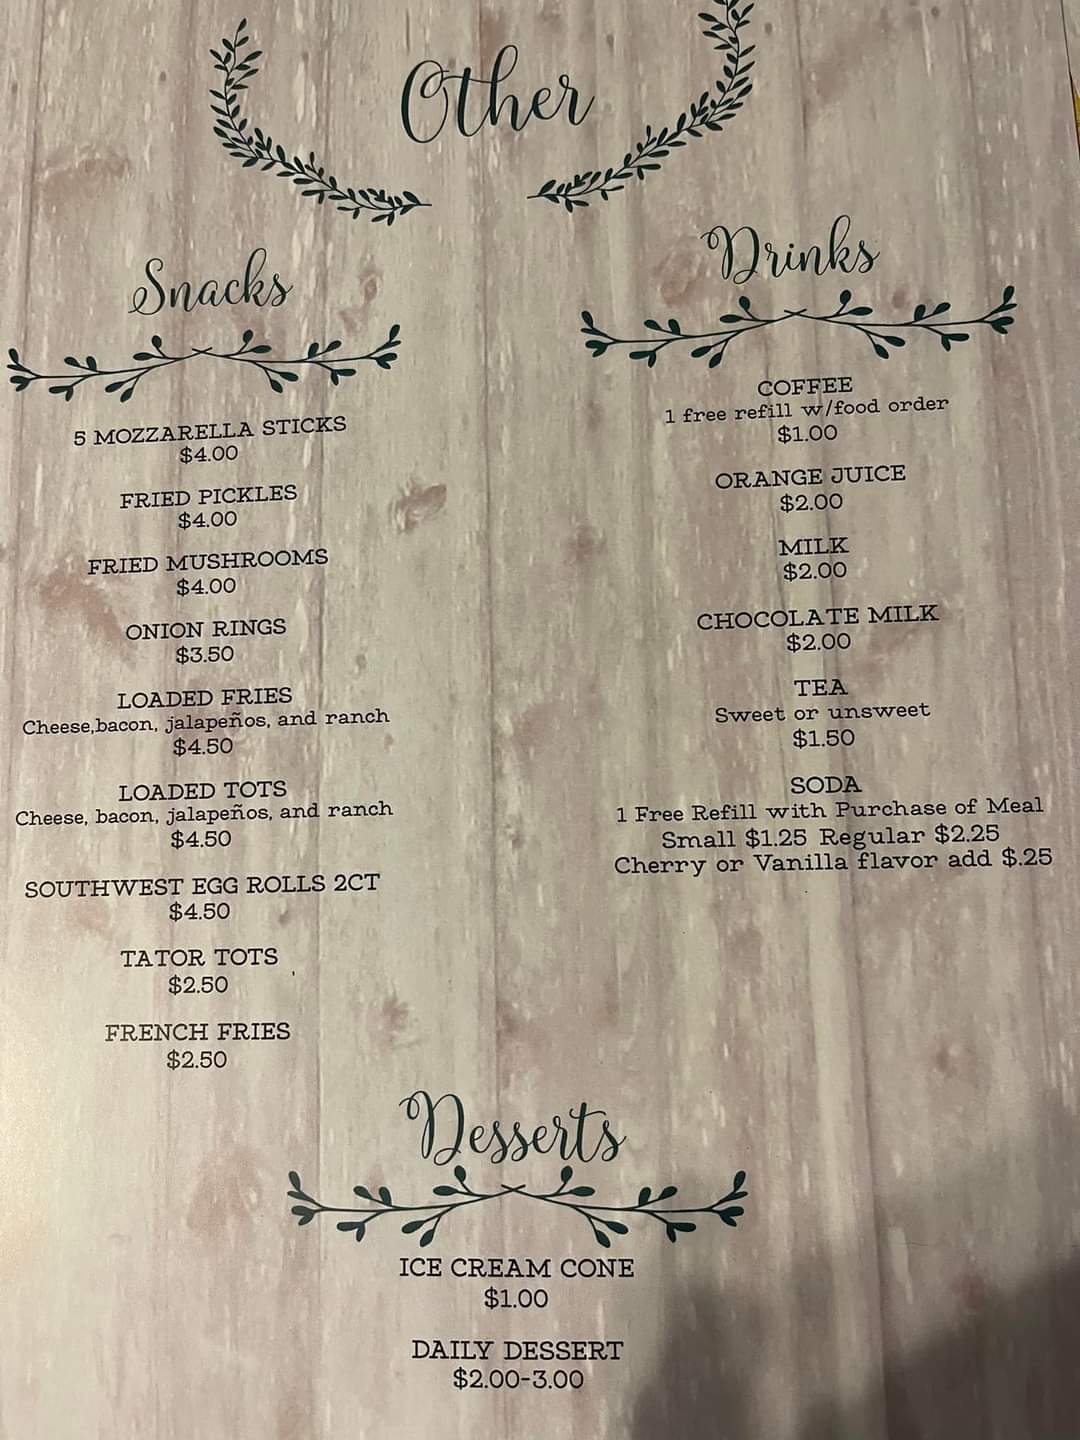 Other
Snacks
5 MOZZARELLA STICKS
$4.00
FRIED PICKLES
$4.00
FRIED MUSHROOMS
$4.00
ONION RINGS
$3.50
LOADED FRIES
Cheese,bacon, jalapeños, and ranch
$4.50
LOADED TOTS
Cheese, bacon, jalapeños, and ranch
$4.50
SOUTHWEST EGG ROLLS 2CT
$4.50
TATOR TOTS
$2.50
FRENCH FRIES
$2.50
Drinks
COFFEE
1 free refill w/food order
$1.00
ORANGE JUICE
$2.00
MILK
$2.00
CHOCOLATE MILK
$2.00
TEA
Sweet or unsweet
$1.50
SODA
1 Free Refill with Purchase of Meal
Small $1.25 Regular $2.25
Cherry or Vanilla flavor add $.25
Desserts
ICE CREAM CONE
$1.00
DAILY DESSERT
$2.00-3.00